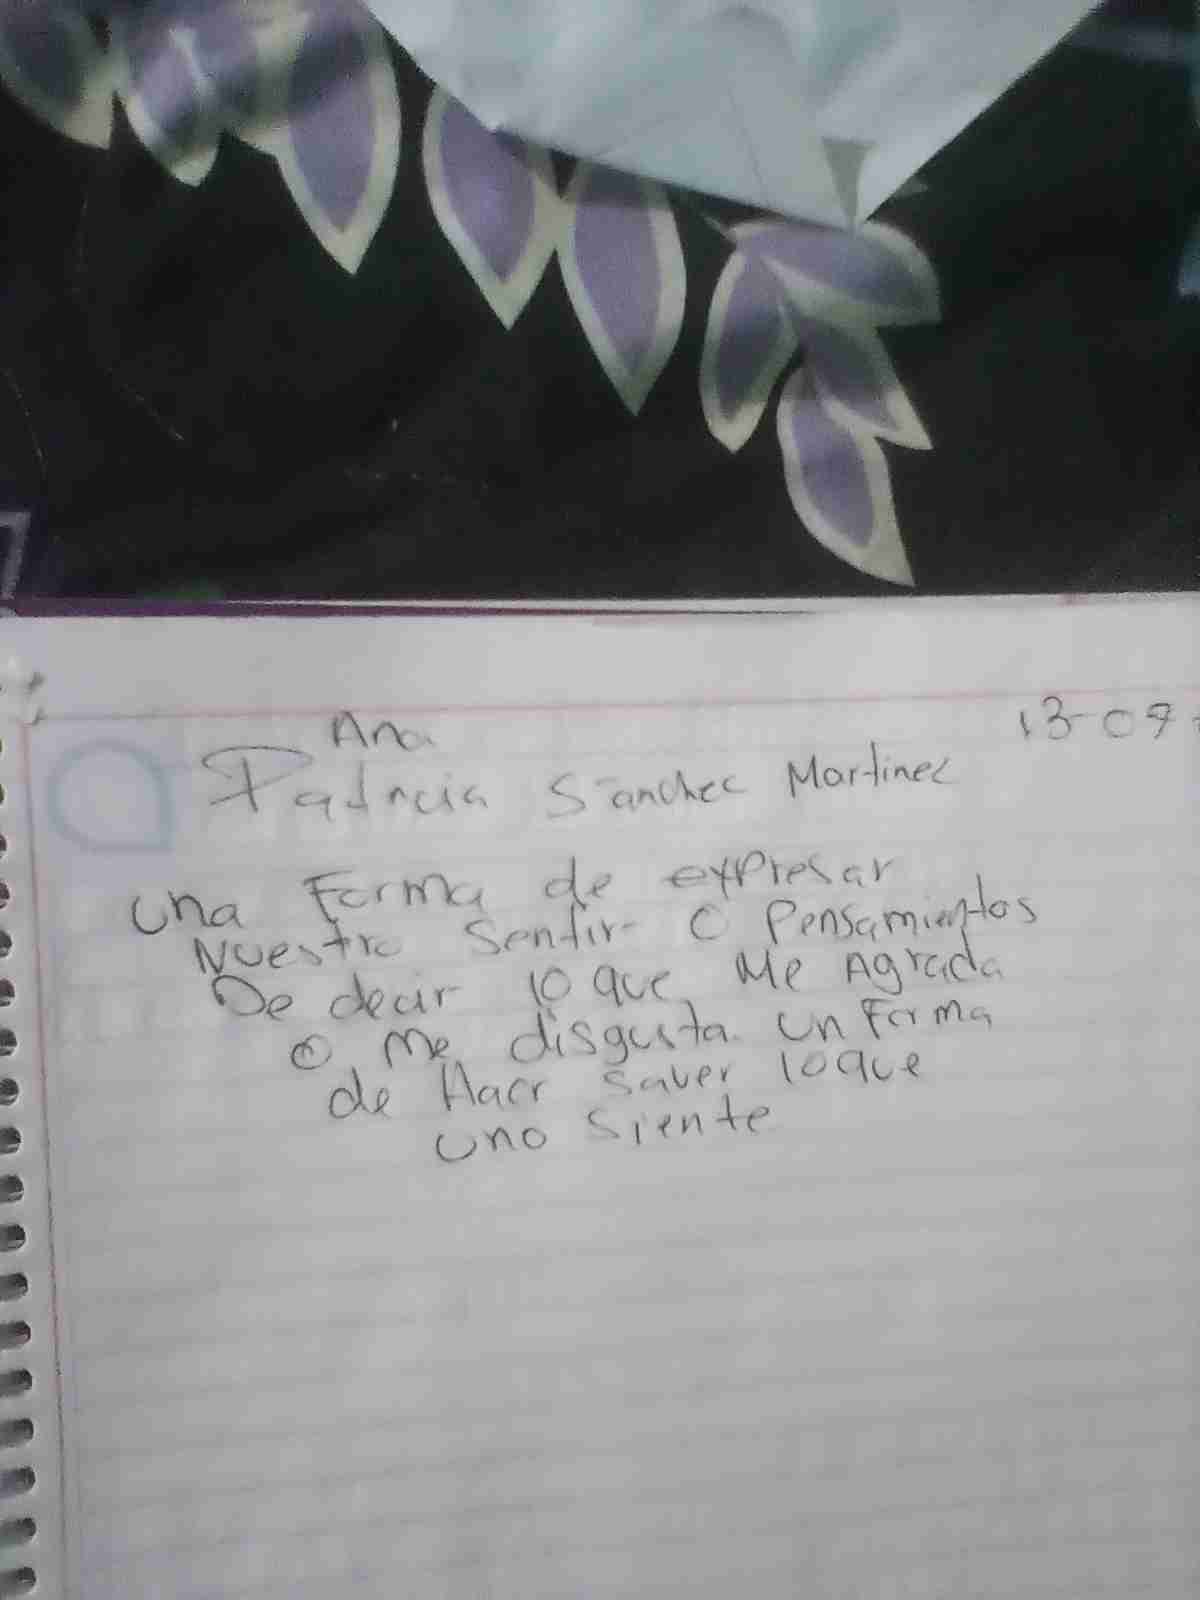 Ana
13-09
Patricia Sánchec Martinec
una Forma de expresar
Nuestro Sentir O Pensamientos
De decir lo que Me Agrada
O Me disgusta un Forma
de Hacr saver loque
uno siente